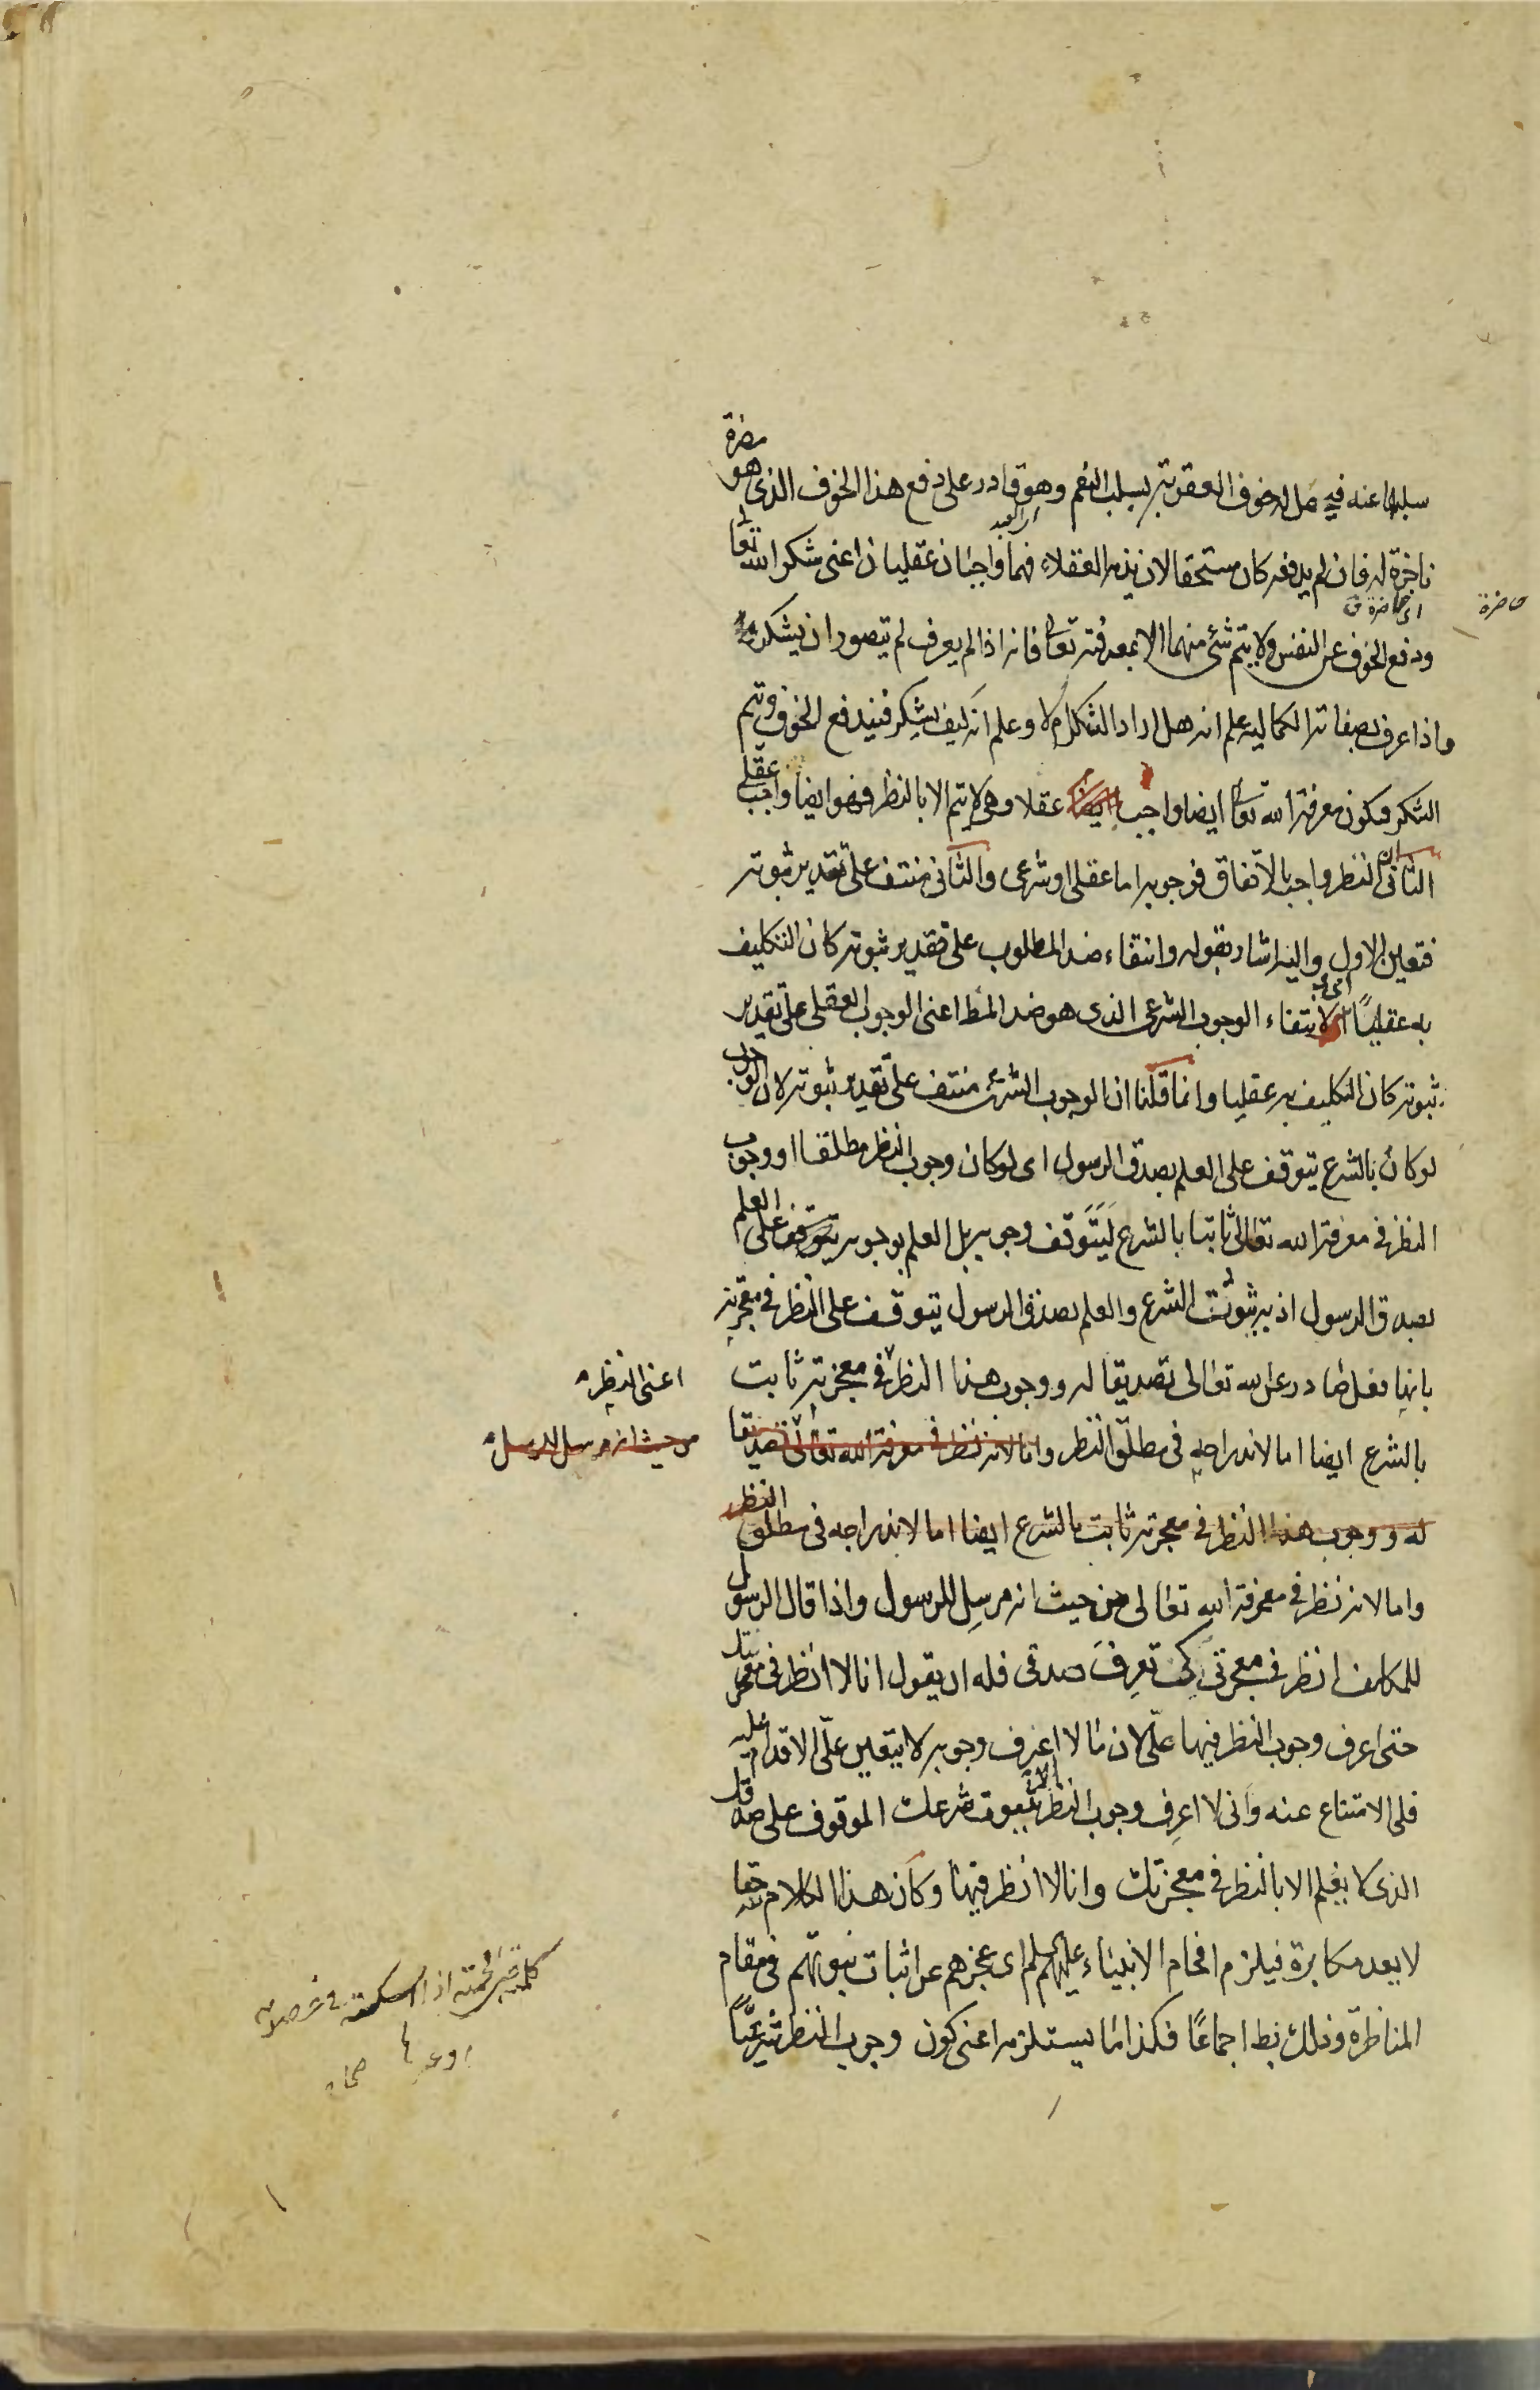 سلبها عنه فيحصل له خوف العقوبة بسلب النعم وهو قادر على دفع هذا الخوف الذى هو مضرة
اى العبد
ناجزة له فان لم يدفعه كان مستحقا لان يذمه العقلاء فهما واجبان عقليان اعنى شكر الله تعالى
اى حاضرة
حاضرة
ودفع الخوف عن النفس ولا يتم شئ منهما الا بمعرفته تعالى فانه اذا لم يعرف لم يتصور ان يشكر
واذا عرف بصفاته الكماليه علم انه هل اراد الشكر ام لا وعلم انه كيف يشكر فيندفع الخوف ويتم
الشكر فيكون معرفة الله تعالى ايضا واجب عقلا وهى لا يتم الا بالنظر فهو ايضا واجب عقلى
الثانى ان النظر واجب بالاتفاق فوجوبه اما عقلى او شرعى والثانى منتف على تقدير ثبوته
فتعين الاول واليه اشار بقوله وانتفاء ضد المطلوب على تقدير ثبوته كان التكليف
به عقليًا اى لانتفاء الوجوب الشرعى الذى هو ضد المط اعنى الوجوب العقلى على تقدير
ثبوته كان التكليف به عقليا وانما قلنا ان الوجوب الشرعى منتف على تقدير ثبوته لان الوجوب
لو كان بالشرع يتوقف على العلم بصدق الرسول اى لو كان وجوب النظر مطلقا او وجوب
النظر فى معرفة الله تعالى ثابتا بالشرع لَيَتَوَقف وجوبه بل العلم بوجوبه يتوقف على العلم
بصدق الرسول اذ به ثبوت الشرع والعلم بصدق الرسول يتوقف على النظر فى معجزته
بانها فعل صادر عن الله تعالى تصديقا له ووجوب هذا النظر فى معجزته ثابت
اعنى النظر
بالشرع ايضا اما لاندراجه فى مطلق النظر واما لانه نظر فى معرفة الله تعالى تصديقا
من حيث انه مرسل للرسل
له ووجوب هذا النظر فى معجزته ثابت بالشرع ايضا اما لاندراجه فى مطلق النظر
واما لانه نظر فى معرفة الله تعالى من حيث انه مرسِل للرسول واذا قال الرسول
للمكلف انظر فى معجزتى كى تعرِفَ صدقى فله ان يقول انا لا انظر فى معجزتك
حتى اعرف وجوب النظر فيها علىّ لان ما لا اعرف وجوبه لا يتعين علىّ الاقدام عليه
فلى الامتناع عنه وانى لا اعرِف وجوب النظر الا بثبوت شرعك الموقوف على صدقك
الذى لا يعلم الا بالنظر فى معجزتك وانا لا انظر فيها وكان هذا الكلام حقا
لا يعد مكابرة فيلزم افحام الانبياء عليهم السلم اى عجزهم عن اثبات نبوتهم فى مقام
المناظرة وذلك بط اجماعًا فكذا ما يستلزمه اعنى كون وجوب النظر شرعيًّا